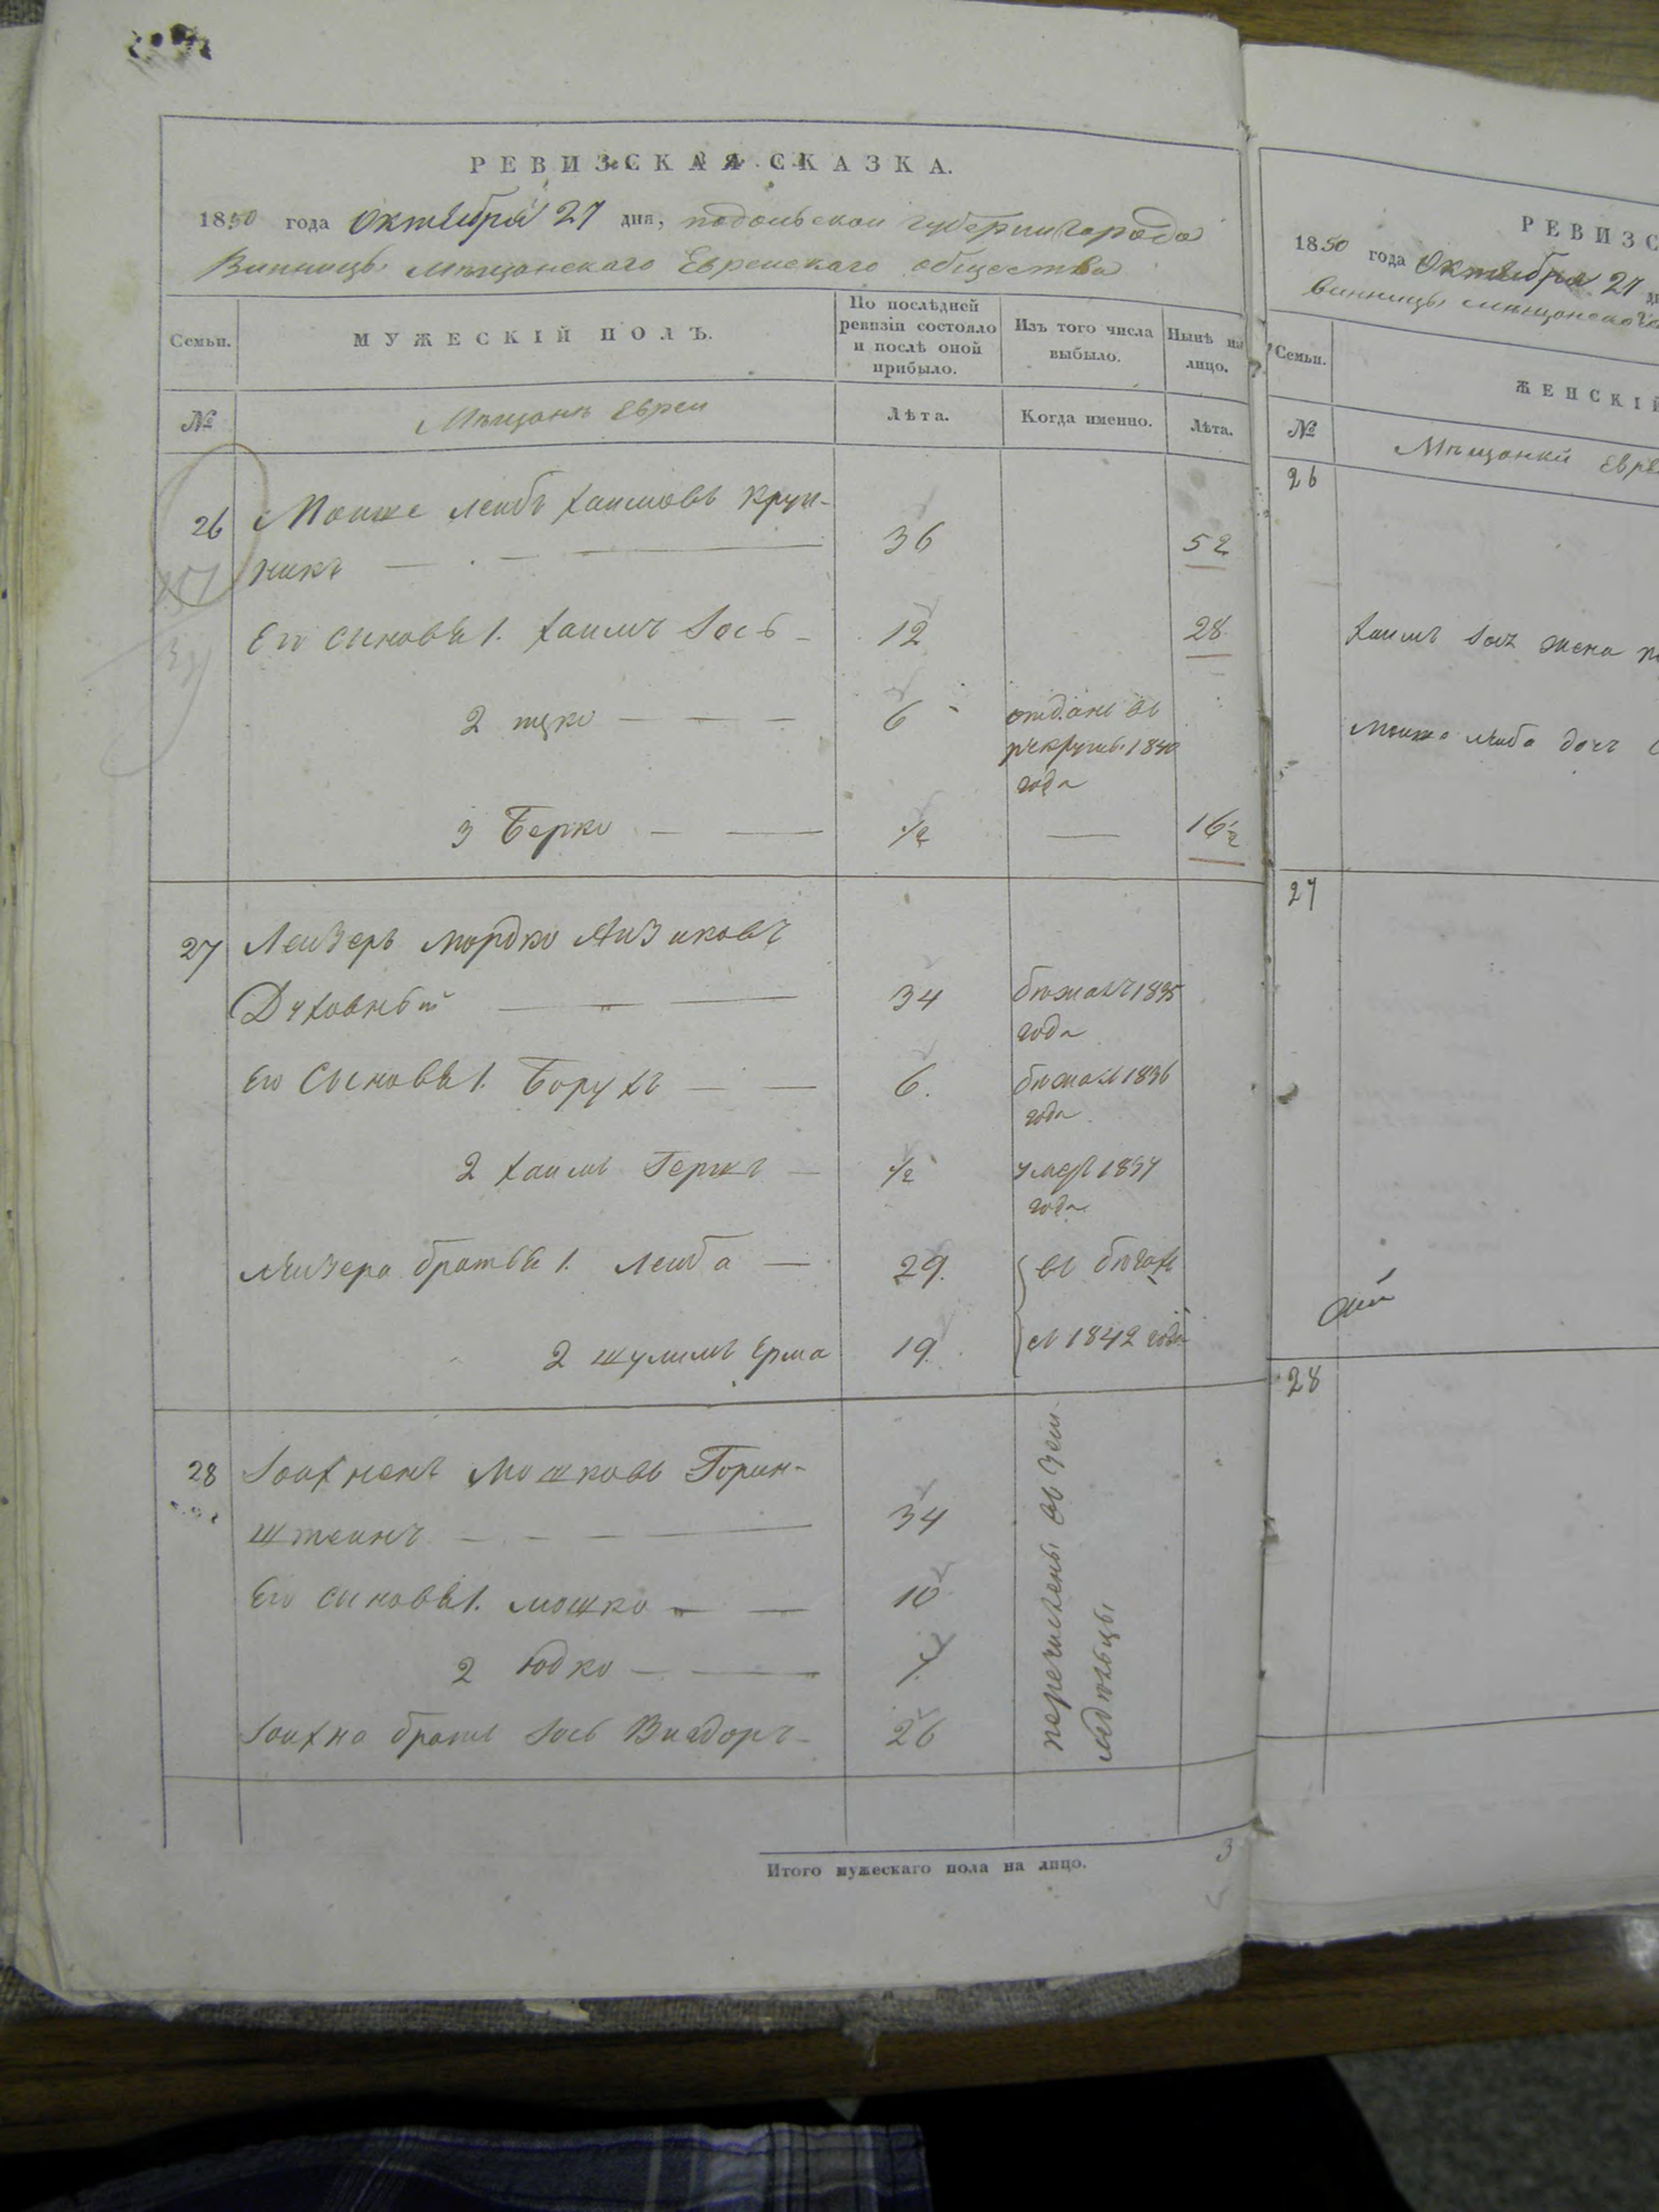 РЕВИЗСКАЯ СКАЗКА.
1850 года Октября 27 дня, подольской губернии города
Винницы мѣщанскаго Еврейскаго общества
Семьи.
МУЖЕСКІЙ ПОЛЪ.
По послѣдней ревизіи состояло и послѣ оной прибыло.
Изъ того числа выбыло.
Нынѣ на лицо.
№
Мѣщанъ Евреи
Лѣта.
Когда именно.
Лѣта.
26 Мошке Лейбъ Хаимовъ Круп-
никъ 36 52
Его сыновья 1. Хаимъ Іось 12 28
2 Ицко 6 отданъ въ
рекруты 1840
года
3 Берко 1/2 16 1/2
27 Лейзеръ Мордко Айзиковъ
Духовный 34 бѣжалъ 1835
года
Его Сыновья 1. Борухъ 6. бѣжалъ 1836
года
2 Хаимъ Гершъ 1/2 умеръ 1837
года
Лейзера братья 1. Лейба 29. въ бѣгахъ
2 Шулимъ Ерма 19. съ 1842 года
28 Іойхненъ Мошковъ Горин-
штейнъ 34
Его сыновья 1. Мошко 10
2 Юдко
Іойхна братъ Іось Вигдоръ 26
перечислены въ зем-
ледѣльцы
Итого мужескаго пола на лицо. 3
РЕВИЗС
1850 года Октября 27
Винницы мѣщанскаго
Семьи.
ЖЕНСКІЙ
№
Мѣщанки Евре
26
Хаимъ Іося жена
Мошко Лейба дочь
27
28